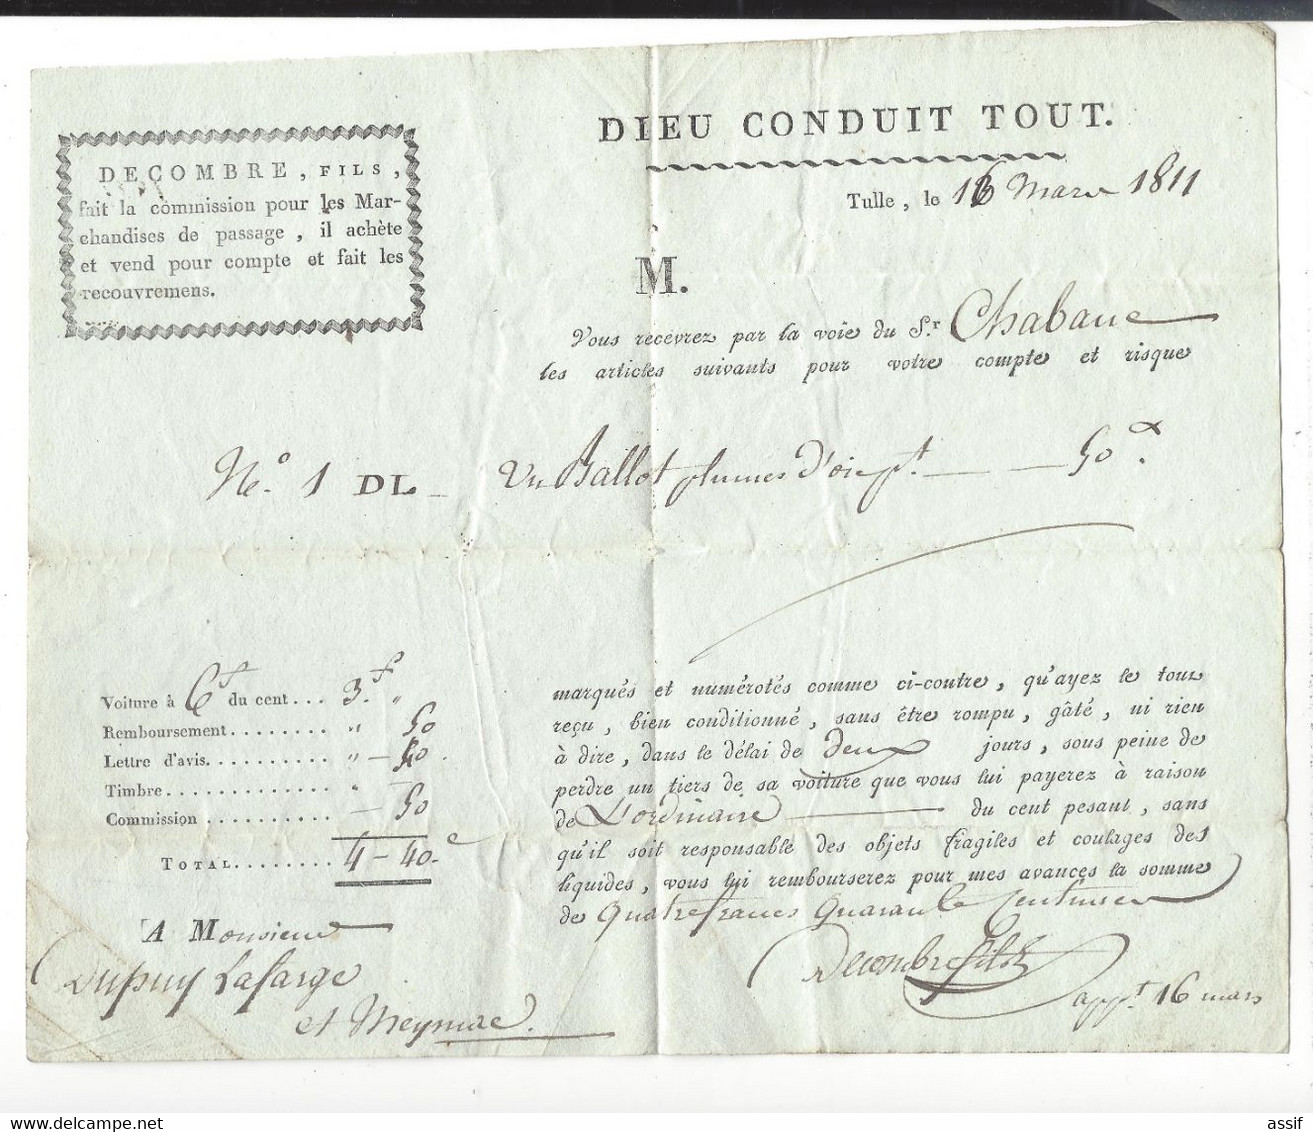 DIEU CONDUIT TOUT.
DECOMBRE, FILS,
fait la commission pour les Mar-
chandises de passage, il achète
et vend pour compte et fait les
recouvremens.
Tulle, le 16 Mars 1811
M.
Vous recevrez par la voie du S.r Chabane
les articles suivants pour votre compte et risque
N.° 1 DL Un Ballot plumes d'oie pt 50
Voiture à 6f du cent... 3.f "
Remboursement........ " 50
Lettre d'avis.......... " – 40
Timbre.............. "
Commission.......... – 50
TOTAL........ 4 – 40.c
marqués et numérotés comme ci-contre, qu'ayez le tout
reçu, bien conditionné, sans être rompu, gâté, ni rien
à dire, dans le délai de deux jours, sous peine de
perdre un tiers de sa voiture que vous lui payerez à raison
de L'ordinaire du cent pesant, sans
qu'il soit responsable des objets fragiles et coulages des
liquides, vous lui rembourserez pour mes avances la somme
de Quatre francs Quarante Centimes
Decombre fils
appt 16 mars
A Monsieur
Dupuy Lafarge
et Meymac.
assif